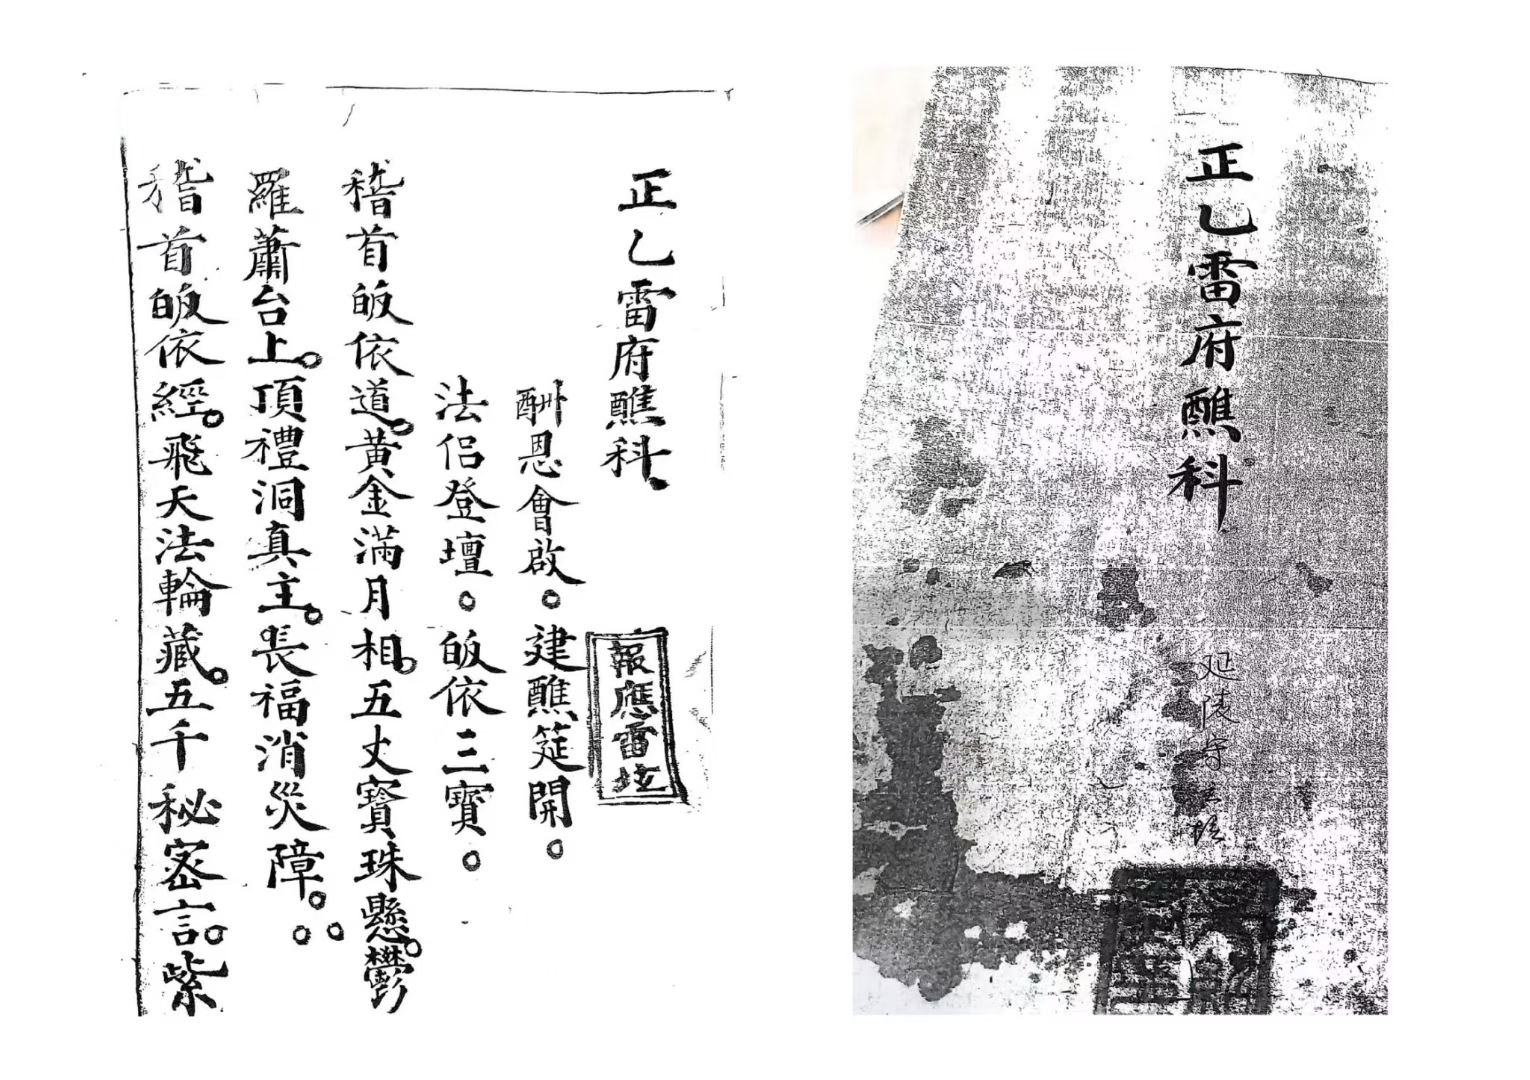 正乙雷府醮科
延陵
正乙雷府醮科
報應雷坛
酬恩會啟。建醮筵開。
法侣登壇。皈依三寶。
稽首皈依道。黃金滿月相。五丈寶珠懸。鬱
羅蕭台上。頂禮洞真主。長福消災障。
稽首皈依經。飛天法輪藏。五千秘密言。紫